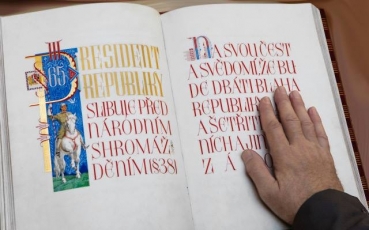 § 65
PRESIDENT
REPUBLIKY
SLIBUJE PŘED
NÁRODNÍM
SHROMÁŽ
DĚNÍM (§38)
NA SVOU ČEST
A SVĚDOMÍ ŽE BU
DE DBÁTI BLAHA
REPUBLIK
A ŠETŘIT
NÍCH A JIN
Z Á